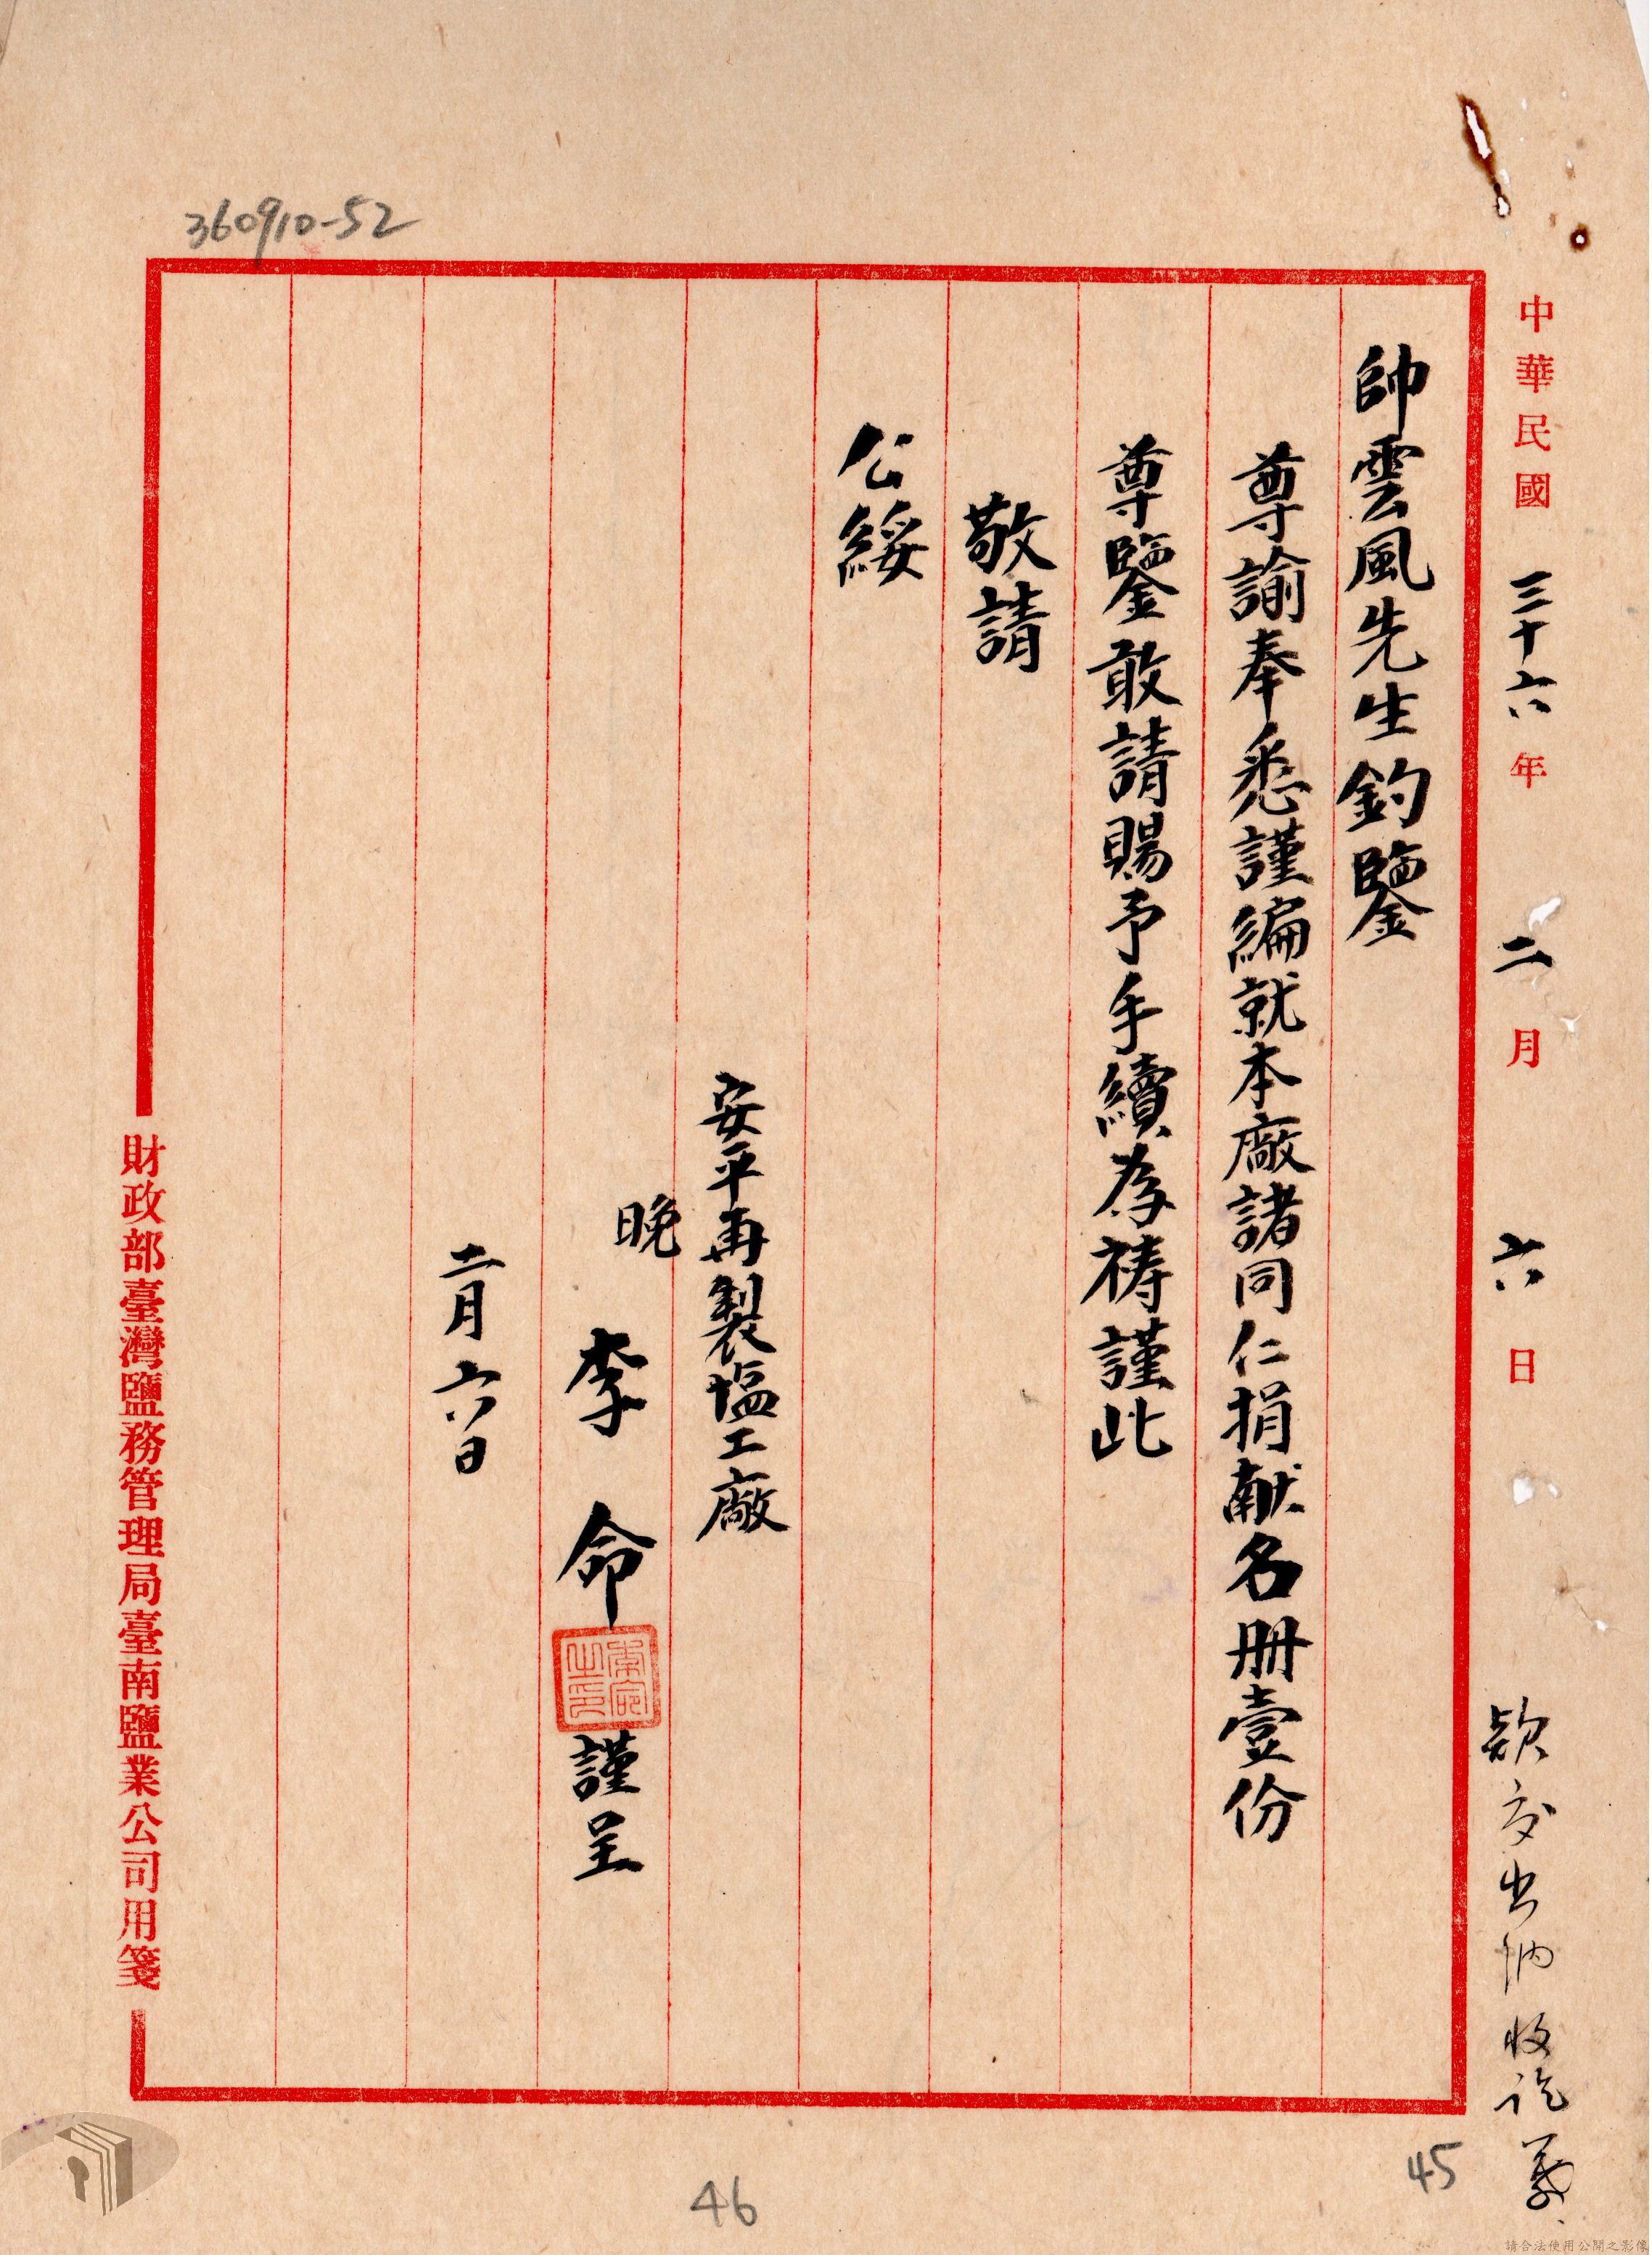 360910-52
中華民國三十六年二月六日
款交出納收訖
帥雲風先生鈞鑒
尊諭奉悉謹編就本廠諸同仁捐献名册壹份
尊鑒敢請賜予手續為禱謹此
敬請
公綏
安平再製塩工廠
晚李命謹呈
二月六日
財政部臺灣鹽務管理局臺南鹽業公司用箋
45
46
請合法使用公開之影像